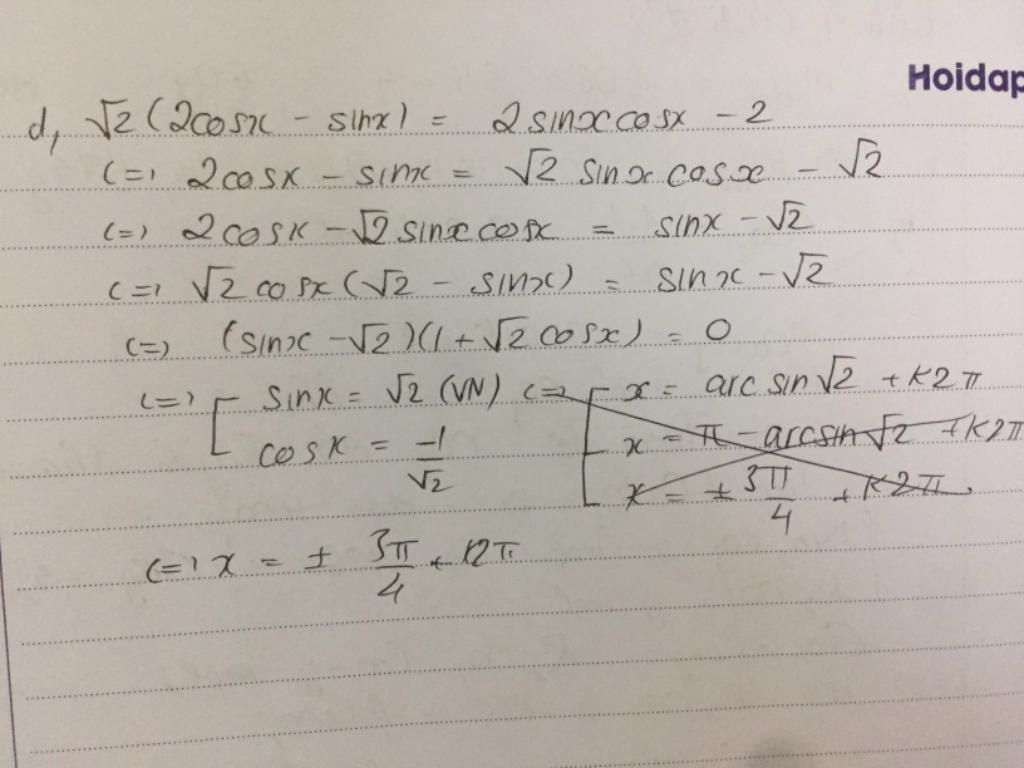 Hoidap
d, √2 (2cosx - sinx) = 2sinxcosx - 2
(=) 2cosx - sinx = √2 sinxcosx - √2
(=) 2cosx - √2 sinxcosx = sinx - √2
(=) √2 cosx (√2 - sinx) = sinx - √2
(=) (sinx - √2)(1 + √2 cosx) = 0
(=) [ sinx = √2 (VN) (=) [ x = arcsin√2 + k2π
cosx = -1/√2 x = π - arcsin√2 + k2π
x = ± 3π/4 + k2π
(=) x = ± 3π/4 + k2π